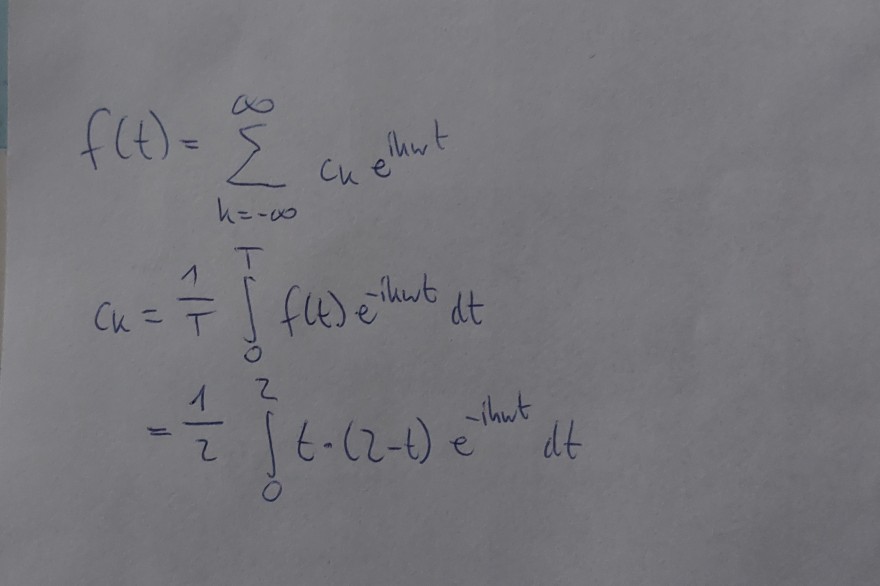 f(t) = ∑_{k=-∞}^{∞} c_k e^{ikωt}
c_k = \frac{1}{T} ∫_{0}^{T} f(t) e^{-ikωt} dt
= \frac{1}{2} ∫_{0}^{2} t·(2-t) e^{-ikωt} dt